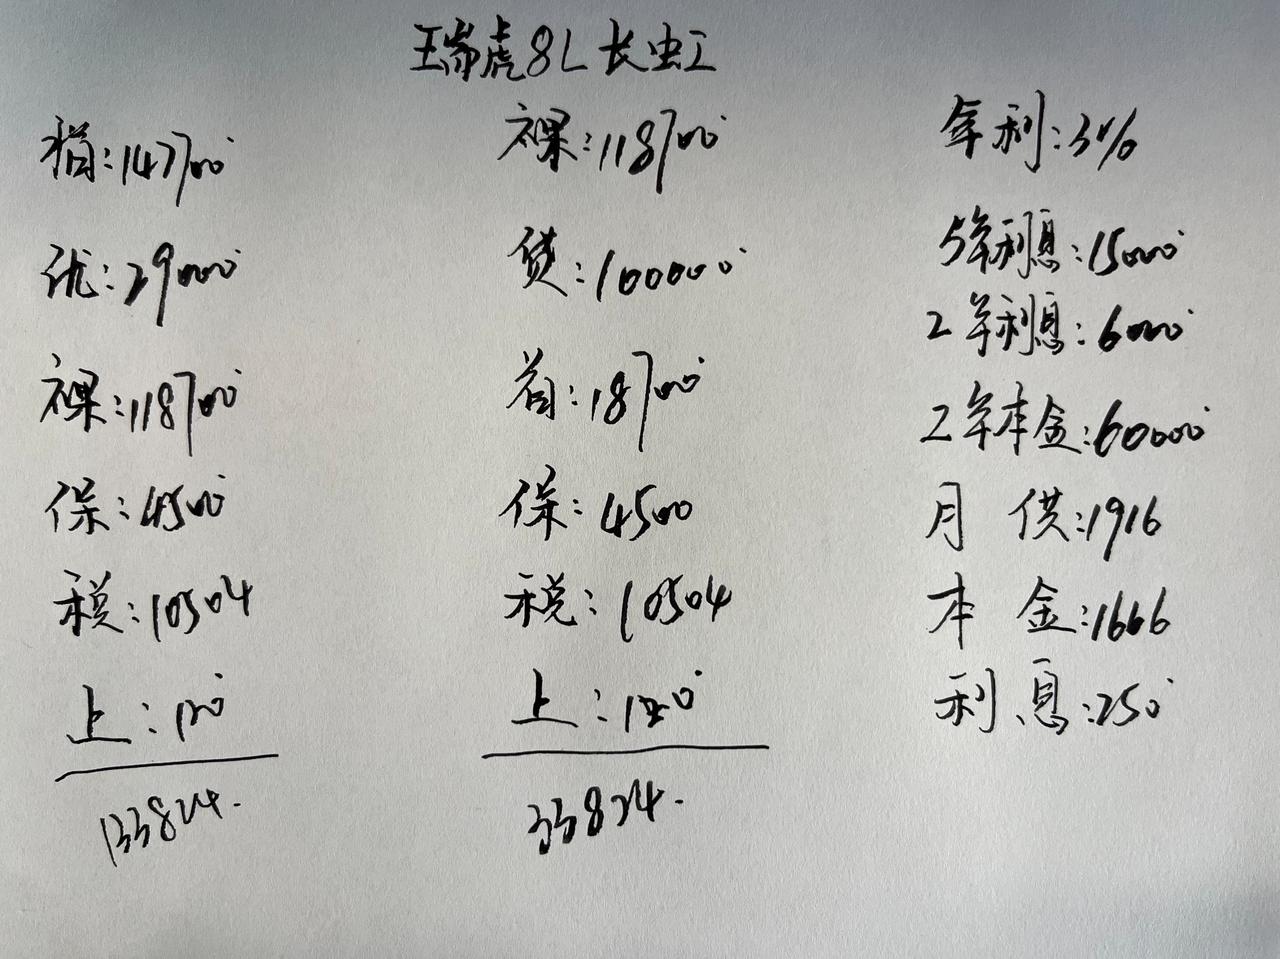 瑞虎8L长虹
指:147700
优:29000
裸:118700
保:4500
税:10504
上:120
133824.
裸:118700
贷:100000
首:18700
保:4500
税:10504
上:120
33824.
年利:3%
5年利息:15000
2年利息:6000
2年本金:60000
月供:1916
本金:1666
利息:250